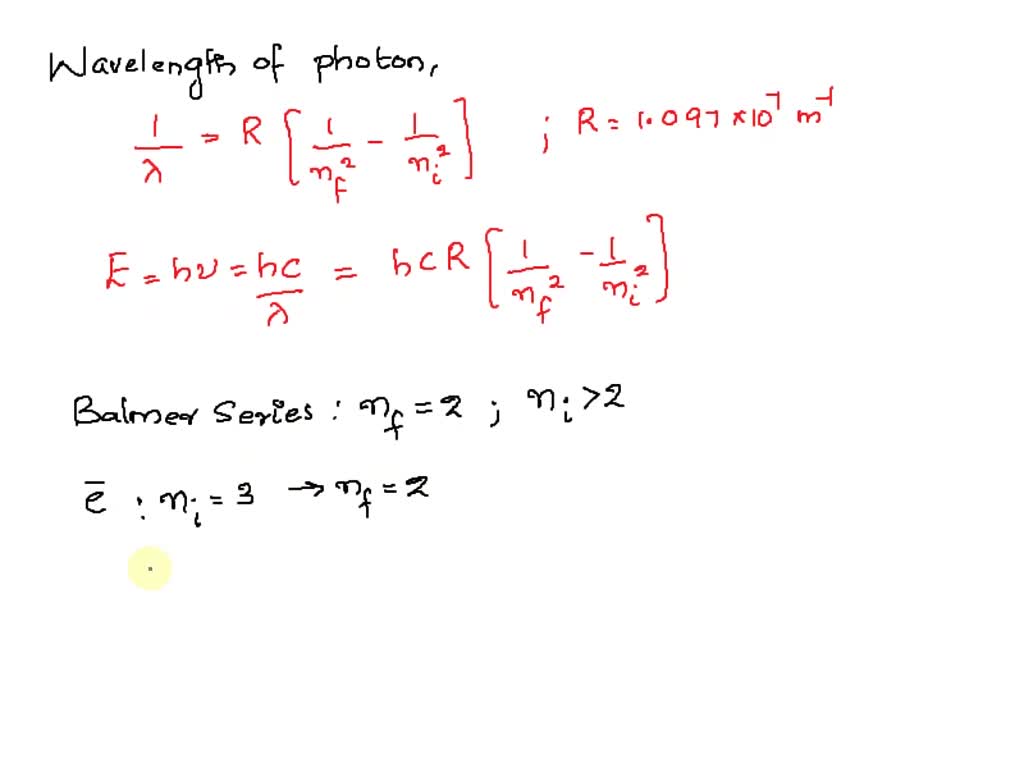 Wavelength of photon,
1/λ = R [1/n_f² - 1/n_i²] ; R = 1.097 × 10⁷ m⁻¹
E = hν = hc/λ = hcR [1/n_f² - 1/n_i²]
Balmer Series : n_f = 2 ; n_i > 2
e̅ : n_i = 3 → n_f = 2